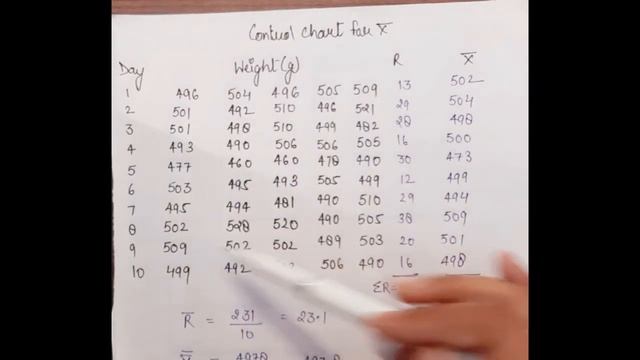 Control chart for X̄
Day Weight(g) R X̄
1 496 504 496 505 509 13 502
2 501 492 510 496 521 29 504
3 501 498 510 499 482 28 498
4 493 490 506 506 505 16 500
5 477 460 460 478 490 30 473
6 503 495 493 505 499 12 499
7 495 494 481 490 510 29 494
8 502 528 520 490 505 38 509
9 509 502 502 489 503 20 501
10 499 492 506 490 16 498
ΣR=
R̄ = 231/10 = 23.1